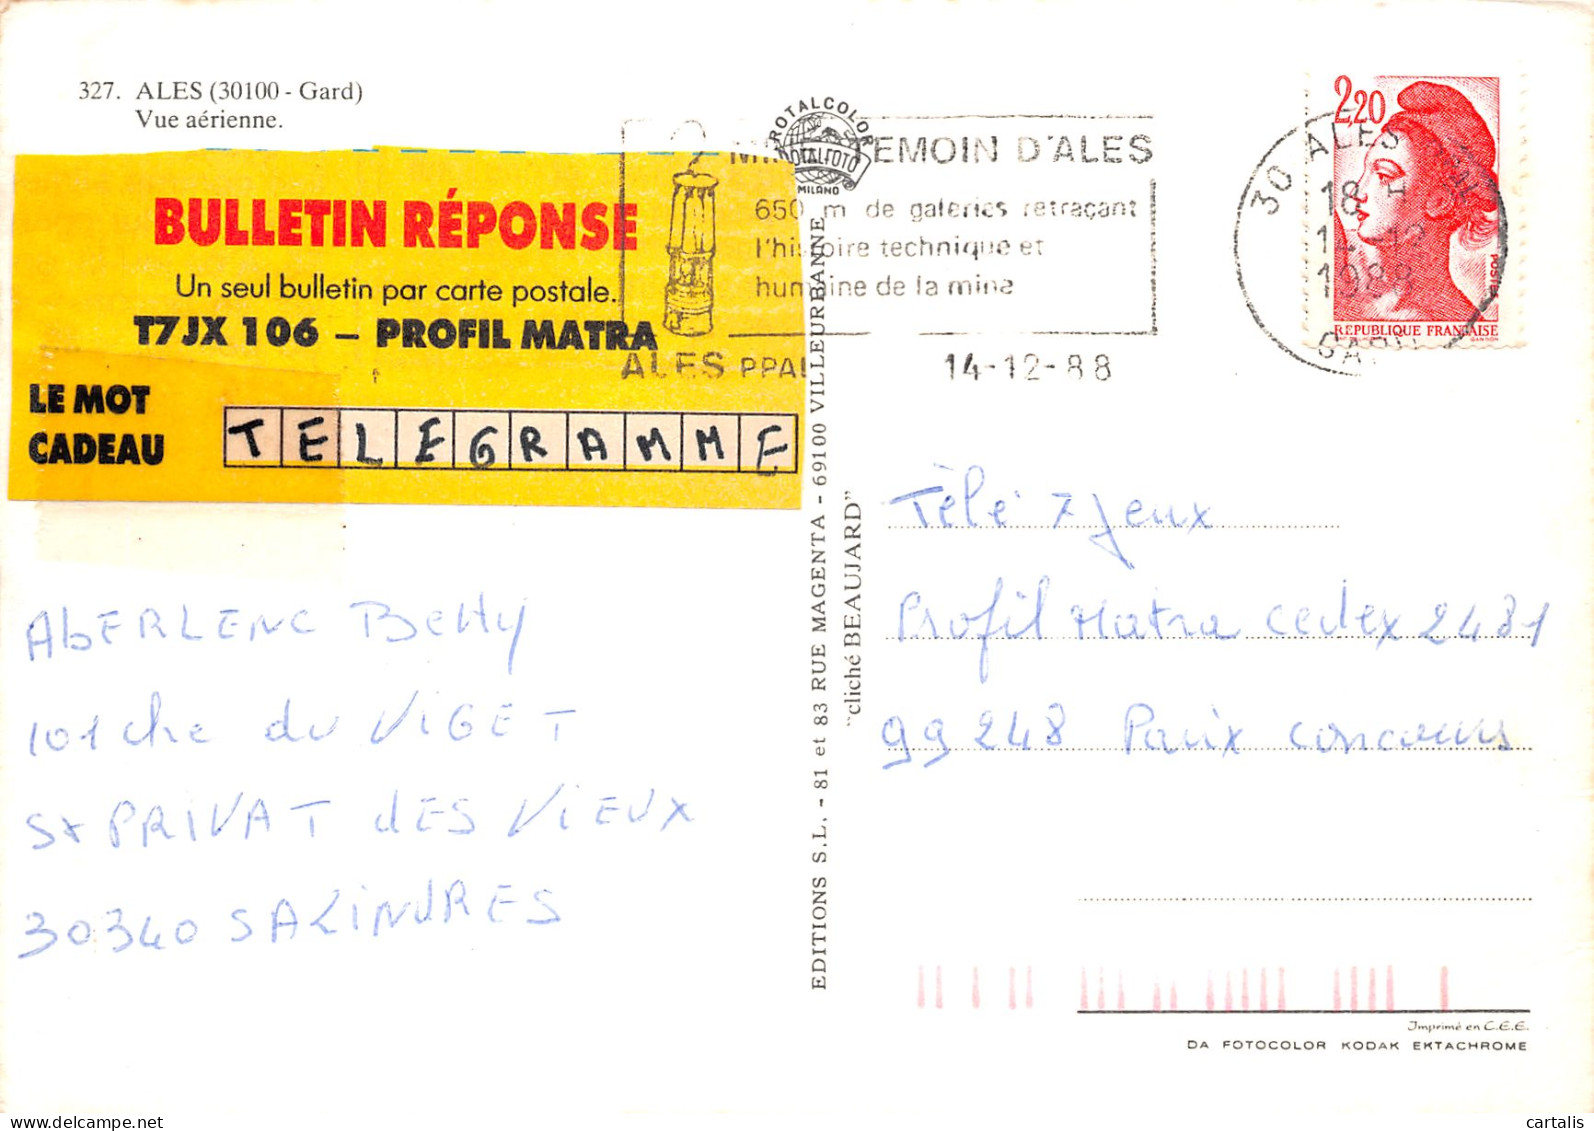 327. ALES (30100 - Gard)
Vue aérienne.
BULLETIN RÉPONSE
Un seul bulletin par carte postale.
T7JX 106 – PROFIL MATRA
LE MOT
CADEAU
TELEGRAMME
AbERLENC Betty
101 che du ViGET
St PRIVAT dES ViEUX
30340 SALINDRES
ROTALCOLOR
ROTALFOTO
MILANO
TEMOIN D'ALES
650 m de galeries retraçant
l'histoire technique et
humaine de la mine
ALES PPAL
14-12-88
30 ALES
18 H
14-12
1988
GARD
2,20
POSTES
REPUBLIQUE FRANÇAISE
GANDON
EDITIONS S.L. - 81 et 83 RUE MAGENTA - 69100 VILLEURBANNE
"cliché BEAUJARD"
Télé 7 Jeux
Profil Matra Cedex 2481
99248 Paris concours
Imprimé en C.E.E.
DA FOTOCOLOR KODAK EKTACHROME
delcampe.net
cartalis